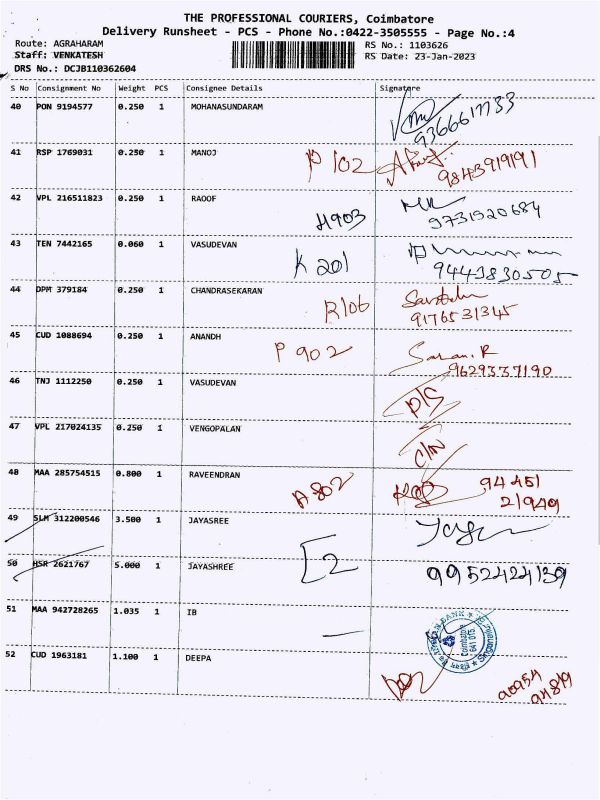 THE PROFESSIONAL COURIERS, Coimbatore
Delivery Runsheet - PCS - Phone No.:0422-3505555 - Page No.:4
Route: AGRAHARAM RS No.: 1103626
Staff: VENKATESH RS Date: 23-Jan-2023
DRS No.: DCJB110362604
S No Consignment No Weight PCS Consignee Details Signature
40 PON 9194577 0.250 1 MOHANASUNDARAM
9366617733
41 RSP 1769031 0.250 1 MANOJ P 102
9843919191
42 VPL 216511823 0.250 1 RAOOF
H903 9731920684
43 TEN 7442165 0.060 1 VASUDEVAN
K 201 9443830505
44 DPM 379184 0.250 1 CHANDRASEKARAN
R106 9176531345
45 CUD 1088694 0.250 1 ANANDH
P 902 Saran.R
9629337190
46 TNJ 1112250 0.250 1 VASUDEVAN
D/S
47 VPL 217024135 0.250 1 VENGOPALAN
C/N
48 MAA 285754515 0.800 1 RAVEENDRAN
A 802 94451
21949
49 SLM 312200546 3.500 1 JAYASREE
50 HSR 2621767 5.000 1 JAYASHREE
[2 9952424139
51 MAA 942728265 1.035 1 IB
Coimbatore
641 015
52 CUD 1963181 1.100 1 DEEPA